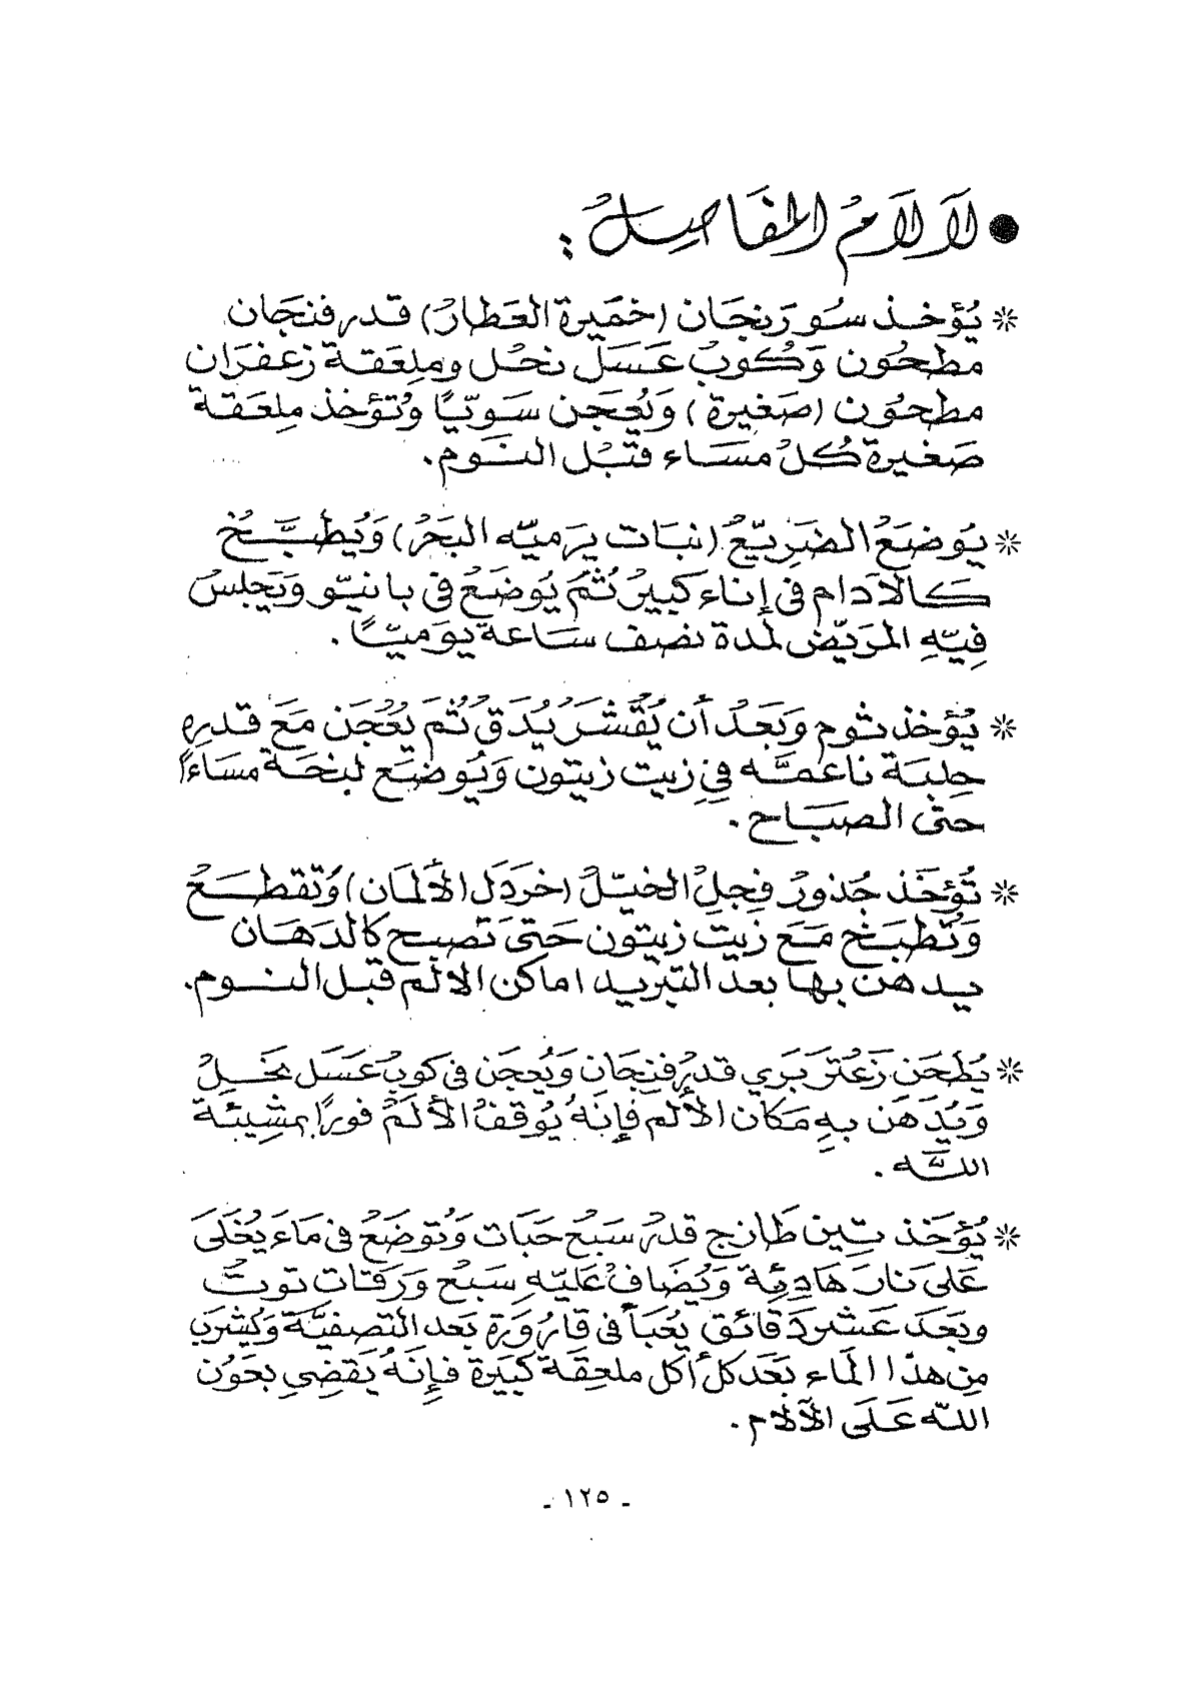 ● لآلامُ المفَاصِلُ :
* يُؤخذ سُورَنجَان (خمَيرة العَطارُ) قدر فنجَان
مطحُون وَكُوبُ عَسَل نحُل وملِعَقة زعفرَان
مطحُون (صَغيرة) وَيُعجَن سَويّاً وتُؤخذ ملِعَقة
صَغيرة كُلُ مسَاء قبُل النَوم.
* يُوضَعُ الضَرِيّعُ (نبَات يَرميّه البَحَرُ) وَيُطبَّخُ
كَالآدام في إناء كَبيرُ ثُمَّ يُوضَعُ في بانيّو وَيَجلسُ
فِيّهِ المرَيّض لمدة نصف سَاعة يوَميّاً.
* يُؤخذ ثوم وَبَعَدُ أن يُقَشَرَ يُدَق ثُمَ يُعُجَن مَعَ قدرِهِ
حِلبَة ناعمَّه فِي زيت زيتون وَيُوضَع لبخَة مسَاءَاً
حتى الصبَاح.
* تُؤخَذ جُذورُ فِجلِ الخيّلُ (خردَل الألمَان) وَتقطَعُ
وَتُطبَخ مَعَ زيت زيتون حَتى تَصبح كالدهَان
يدهن بها بعد التبريد اماكن الالم قبل النوم.
* يُطحَن زَعُترَ بَري قدرُ فنِجَان وَيُعجَن في كوبُ عَسَل نحَلُ
وَيُدَهَن بهِ مَكان الألم فإنَهُ يُوقفُ الألَمُ فورًا بمشِيئَة
اللَّه .
* يُؤخَذ تين طَازج قدرُ سَبعُ حَبَات وَتُوضَعُ في مَاءَ يُغلَى
عَلىَ نارَ هَادِئِة وَيُضَافُ عَليّهِ سَبعُ وَرَقات توتُ
وبَعَدَ عَشر دَقائق يُعَبأ في قارُورَة بَعد التصفيَّة وَيُشرَب
مِن هذا الماء بَعَد كل أكل ملعِقة كَبيَرة فإِنَهُ يَقضِي بعَوُن
اللّه عَلَى الآلام.
- ١٢٥ -